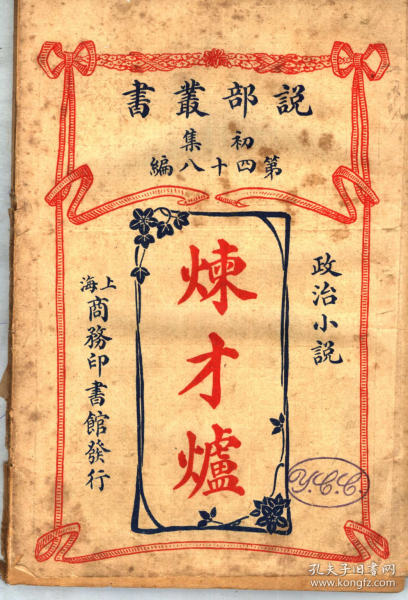 説部叢書
初集
第四十八編
政治小説
煉才爐
上海
商務印書館發行
Y.C.C.
孔夫子旧书网
www.kongfz.com